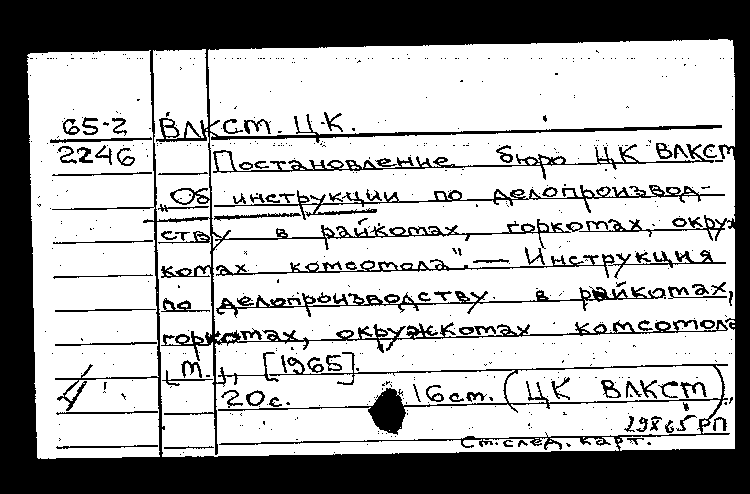 65-2 ВЛКСМ. Ц.К.
2246 Постановление бюро ЦК ВЛКСМ
„Об инструкции по делопроизвод-
ству в райкомах, горкомах, окруж
комах комсомола". — Инструкция
по делопроизводству в райкомах,
горкомах, окружкомах комсомола
[М.], [1965].
20с. 16см. (ЦК ВЛКСМ)
19865 РП
См. след. карт.